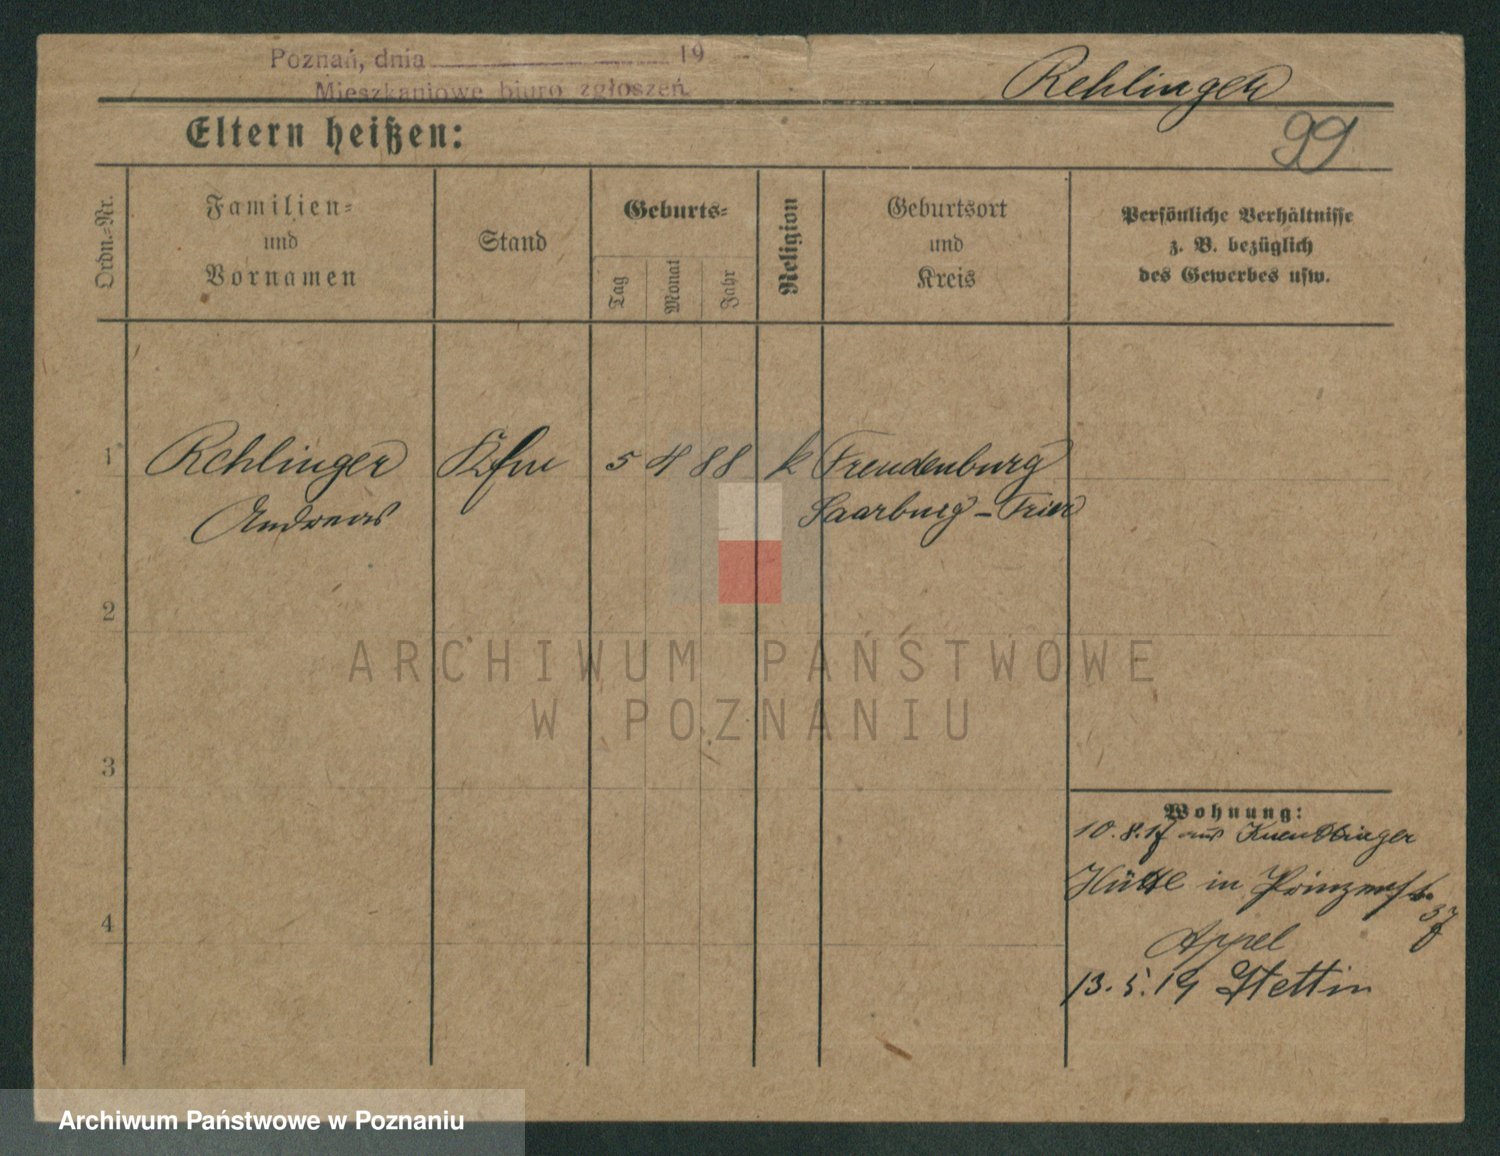 Poznań, dnia 19
Mieszkaniowe biuro zgłoszeń
Rehlinger
Eltern heißen:
99
Ordn.-Nr.
Familien-
und
Vornamen
Stand
Geburts-
Tag
Monat
Jahr
Religion
Geburtsort
und
Kreis
Persönliche Verhältnisse
z. B. bezüglich
des Gewerbes usw.
1 Rehlinger Kfm 5 4 88 k Freudenburg
Andreas Saarburg - Trier
2
3
4
Wohnung:
10.8.17 aus
Hütte in Prinzenstr.
37
Appel
13.5.19 Stettin
ARCHIWUM PAŃSTWOWE
W POZNANIU
Archiwum Państwowe w Poznaniu